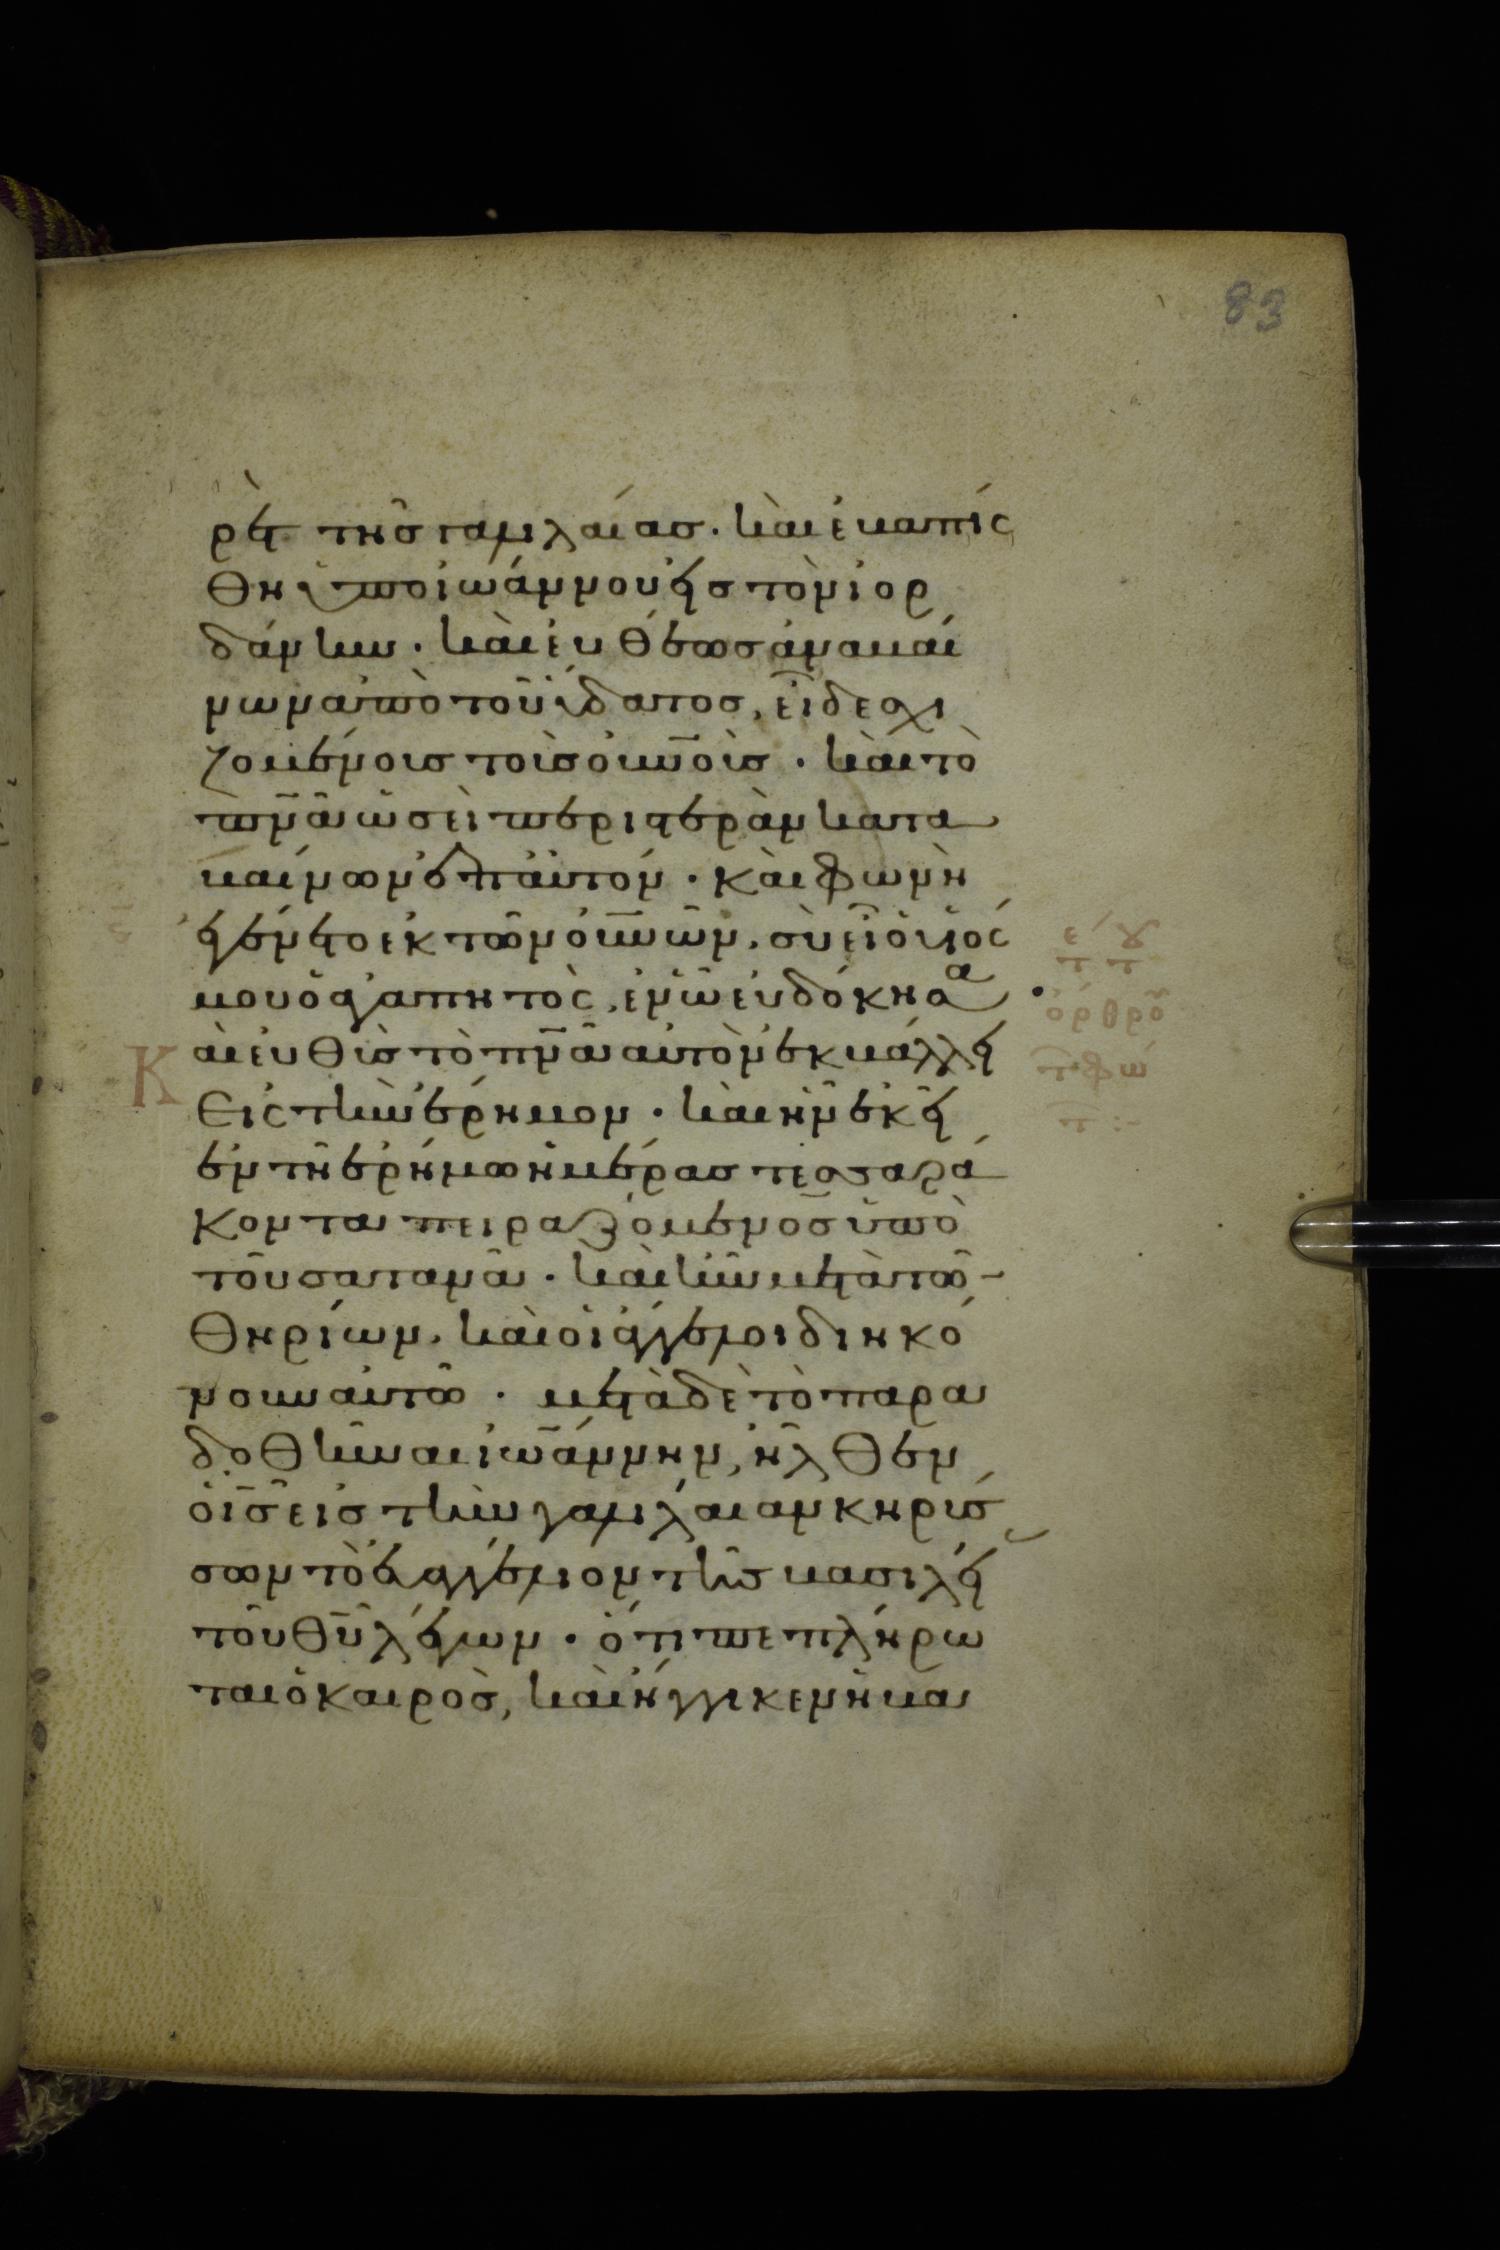 83
ρὲτ τῆσ γαλιλαίασ. καὶ ἐβαπτίσ
θη ὑπὸ ἰωάννου εἰσ τὸν ἰορ
δάνην. καὶ εὐθέωσ ἀναβαί
νων ἀπὸ τοῦ ὕδατοσ, εἶδε σχι
ζομένουσ τοὺσ οὐνοὺσ. καὶ τὸ
πνᾶ ὡσεὶ περιστερὰν καταβαῖνον
βαίνων ἐπ αὐτόν. καὶ φωνὴ
ἐγένετο ἐκ τῶν οὐνῶν. σὺ εἶ ὁ υἱόσ
μου ὁ ἀγαπητὸσ, ἐν ᾧ εὐδόκησα
Καὶ εὐθὺσ τὸ πνᾶ αὐτὸν ἐκβάλλει
εἰσ τὴν ἔρημον. καὶ ἦν ἐκεῖ
ἐν τῆ ἐρήμω ἡμέρασ τεσσαρά
κοντα πειραζόμενοσ ὑπὸ
τοῦ σατανᾶ. καὶ ἦν μετὰ τῶ
θηρίων. καὶ οἱ ἄγγελοι διηκό
νουν αὐτῶ. μετὰ δὲ τὸ παρα
δοθῆναι ἰωάννην, ἦλθεν
ὁ ισ εἰσ τὴν γαλιλαίαν κηρύσ
σων τὸ εὐαγγέλιον τῆσ βασιλεί
τοῦ θυ λέγων. ὅτι πεπλήρω
ται ὁ καιρὸσ, καὶ ἤγγικεν ἡ βα
ὄρθρο